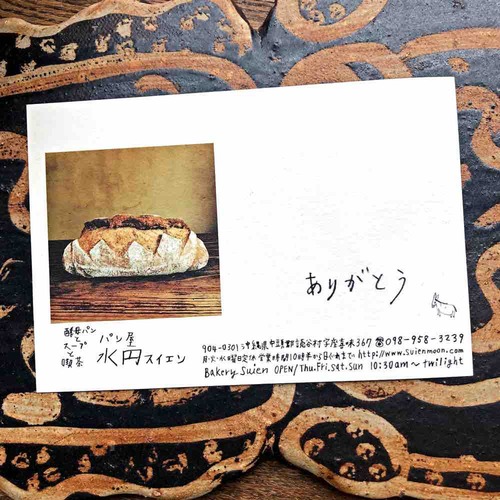 ありがとう
酵母パン
と
スープ
と
喫茶
パン屋
水円スイエン
904-0301 沖縄県中頭郡読谷村字座喜味367 ☎098-958-3239
月・火・水曜日定休 営業時間10時半から日ぐれまで http://www.suienmoon.com
Bakery Suien OPEN/Thu.Fri.Sat.Sun 10:30am〜twilight